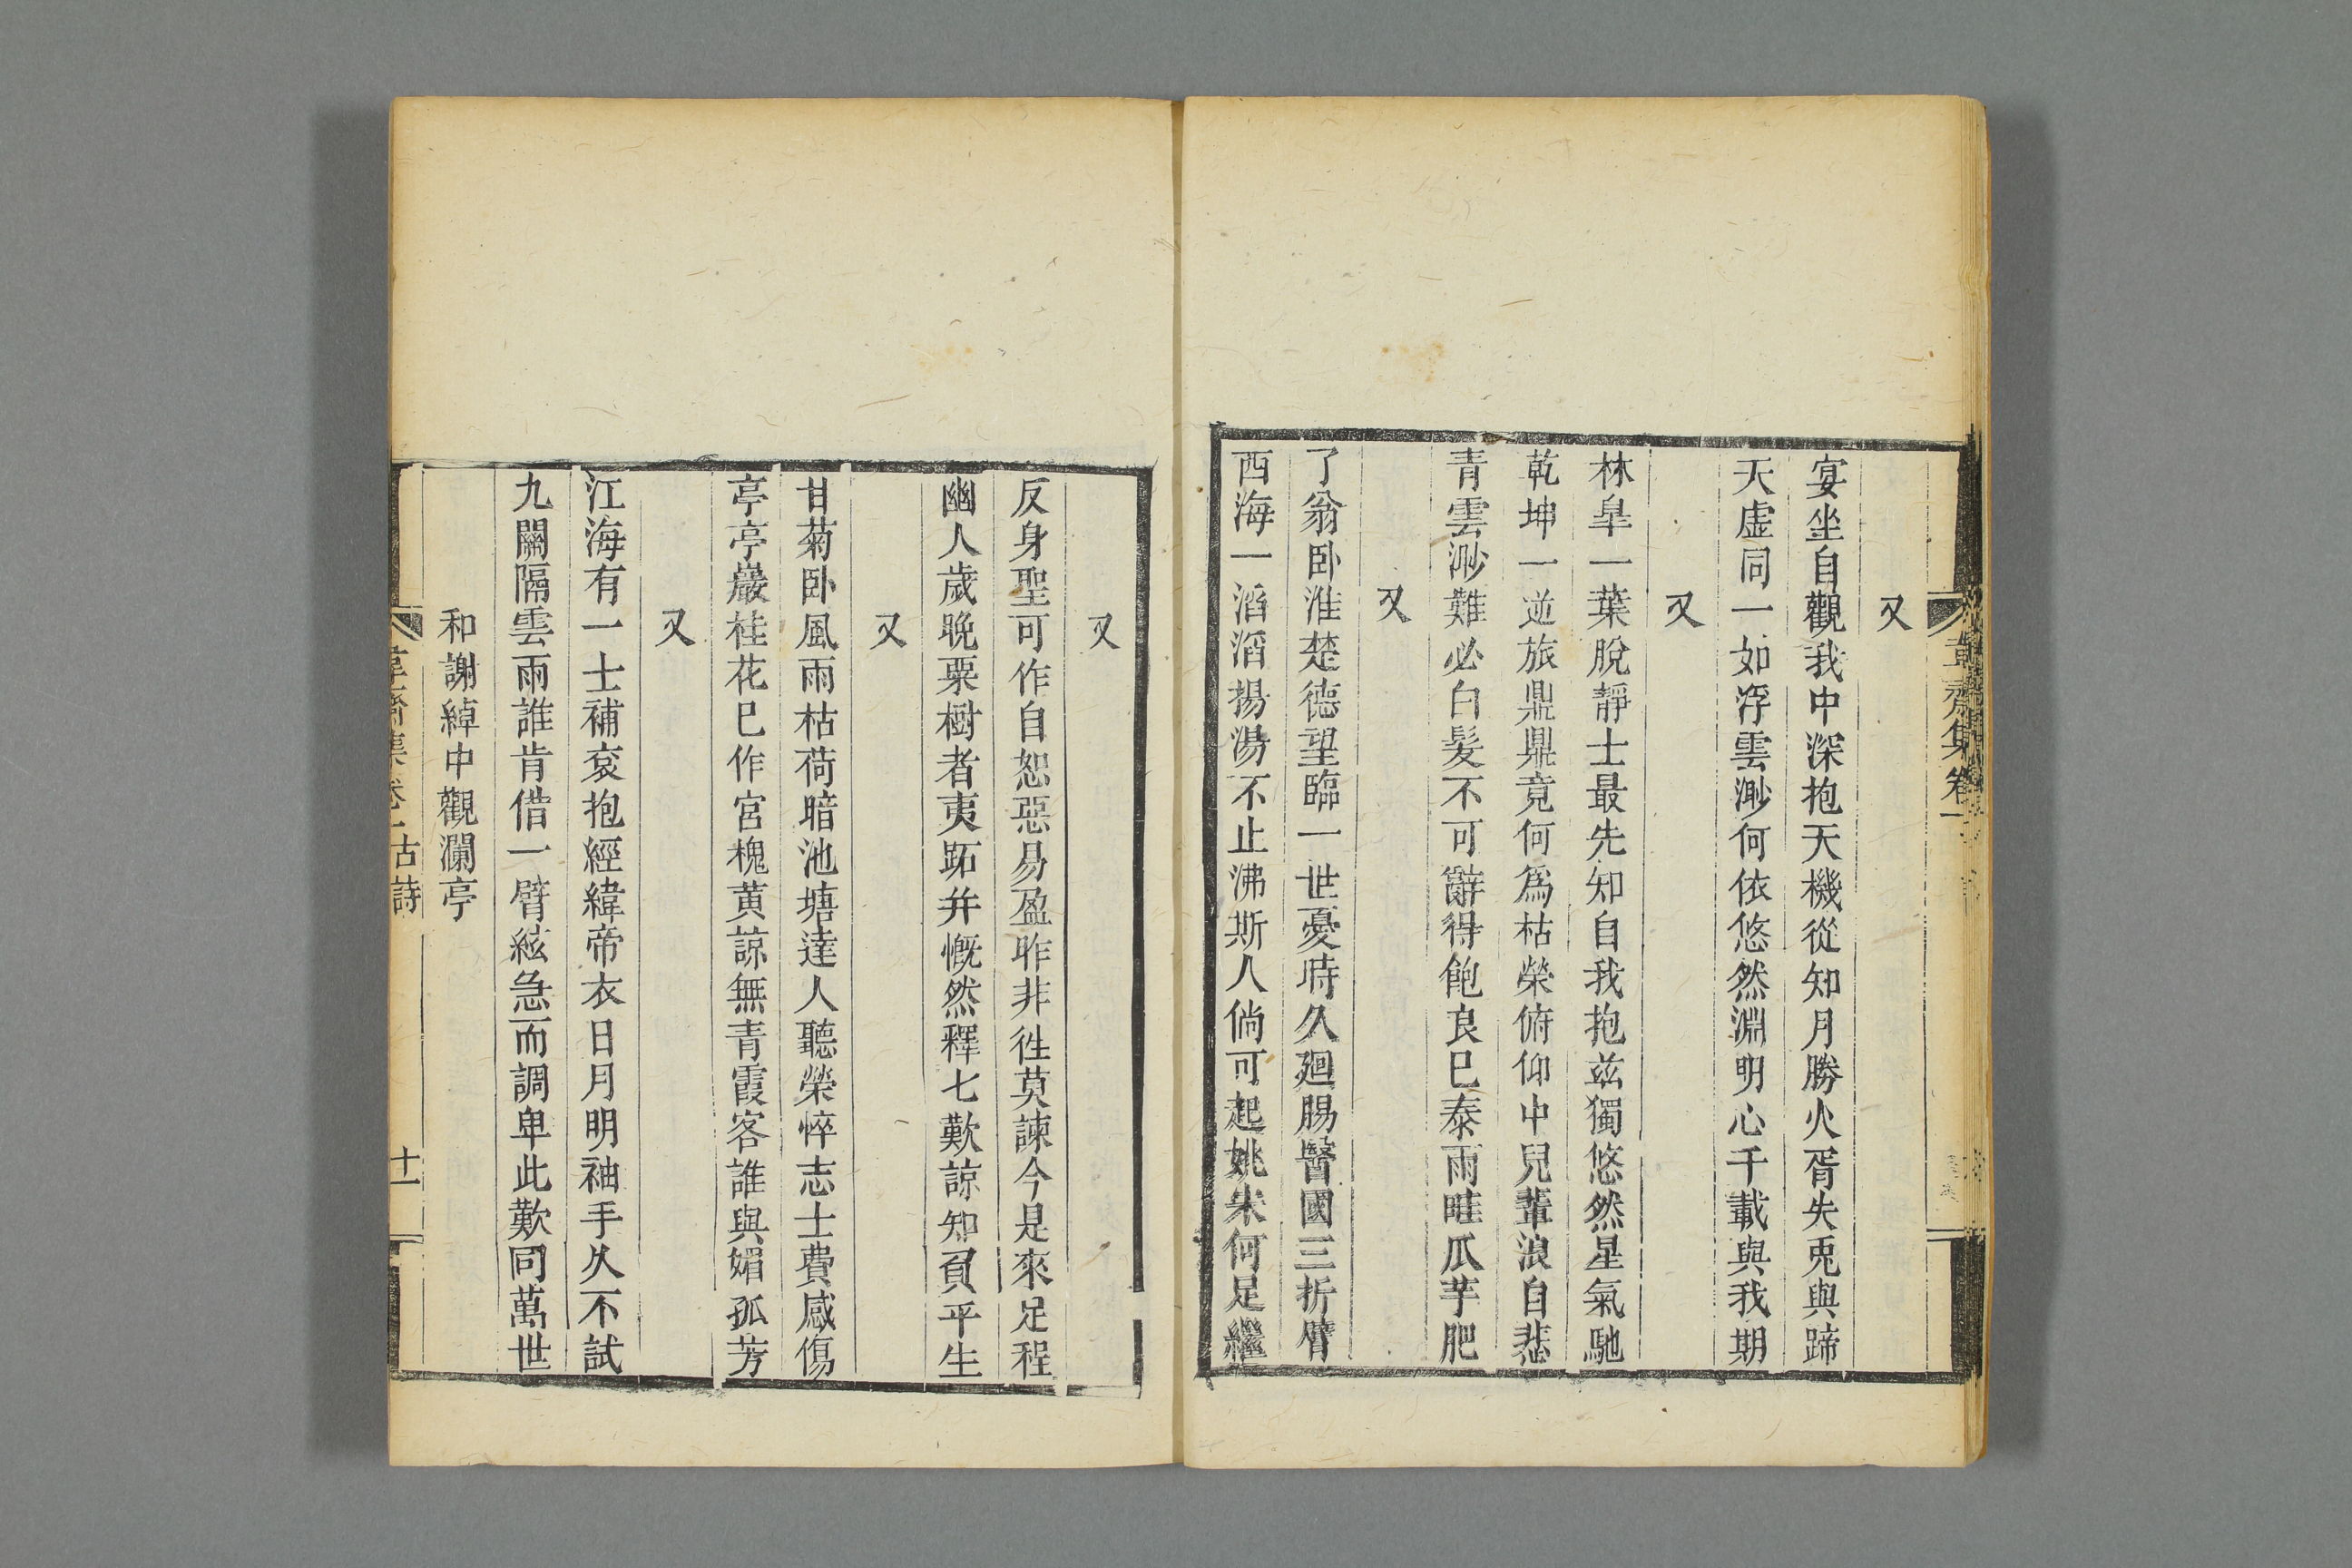 又
宴坐自觀我中深抱天機從知月勝火胥失兎與蹄
天虛同一如浮雲渺何依悠然淵明心千載與我期
又
林臯一葉脫靜士最先知自我抱玆獨悠然星氣馳
乾坤一逆旅鼎鼎竟何爲枯榮俯仰中兒輩浪自悲
青雲渺難必白髮不可辭得飽良已泰雨畦瓜芋肥
又
了翁卧淮楚德望臨一世憂時久廻腸醫國三折臂
西海一滔滔揚湯不止沸斯人倘可起姚宋何足繼
又
反身聖可作自恕惡易盈昨非徃莫諫今是來足程
幽人歲晚粟樹者夷跖幷慨然釋七歎諒知負平生
又
甘菊卧風雨枯荷暗池塘達人聽榮悴志士費感傷
亭亭巖桂花已作宮槐黃諒無青霞客誰與媚孤芳
又
江海有一士補衮抱經緯帝衣日月明袖手久不試
九關隔雲雨誰肯借一臂絃急而調卑此歎同萬世
和謝綽中觀瀾亭
韋齋集卷一古詩
十一